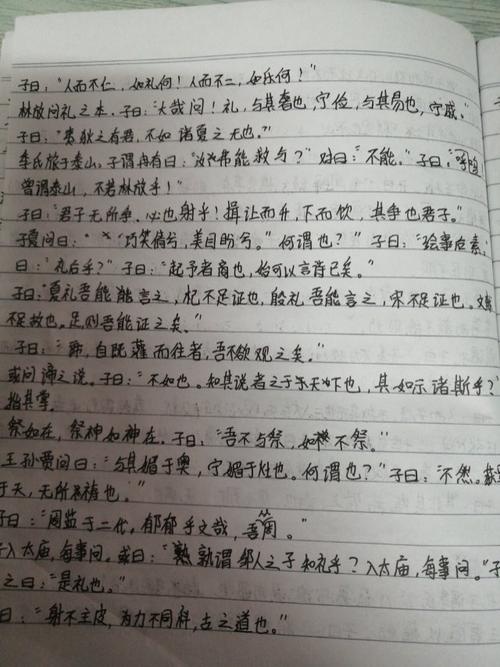 子曰:"人而不仁,如礼何!人而不二,如乐何!"
林放问礼之本.子曰:"大哉问!礼,与其奢也,宁俭,与其易也,宁戚."
子曰:"夷狄之有君,不如诸夏之无也."
季氏旅于泰山.子谓冉有曰:"汝弗能救与?"对曰:"不能."子曰:"呼
曾谓泰山,不若林放乎!"
子曰:"君子无所争.必也射乎!揖让而升,下而饮,其争也君子."
子夏问曰:"巧笑倩兮,美目盼兮."何谓也?"子曰:"绘事后素.
曰:"礼后乎?"子曰:"起予者商也,始可以言诗已矣."
子曰:"夏礼吾能能言之,杞不足证也,殷礼吾能言之,宋不足证也.文献
不足故也.足,则吾能证之矣."
子曰:"禘,自既灌而往者,吾不欲观之矣."
或问禘之说.子曰:"不如也.知其说者之于天下也,其如示诸斯乎?
指其掌.
祭如在,祭神如神在.子曰:"吾不与祭,如不祭."
王孙贾问曰:"与其媚于奥,宁媚于灶也.何谓也?"子曰:"不然.获罪
于天,无所祷也."
子曰:"周监于二代,郁郁乎文哉,吾从周."
子入太庙,每事问.或曰:"孰谓邹人之子知礼乎?入太庙,每事问."子
之曰:"是礼也."
曰:"射不主皮,为力不同科,古之道也."